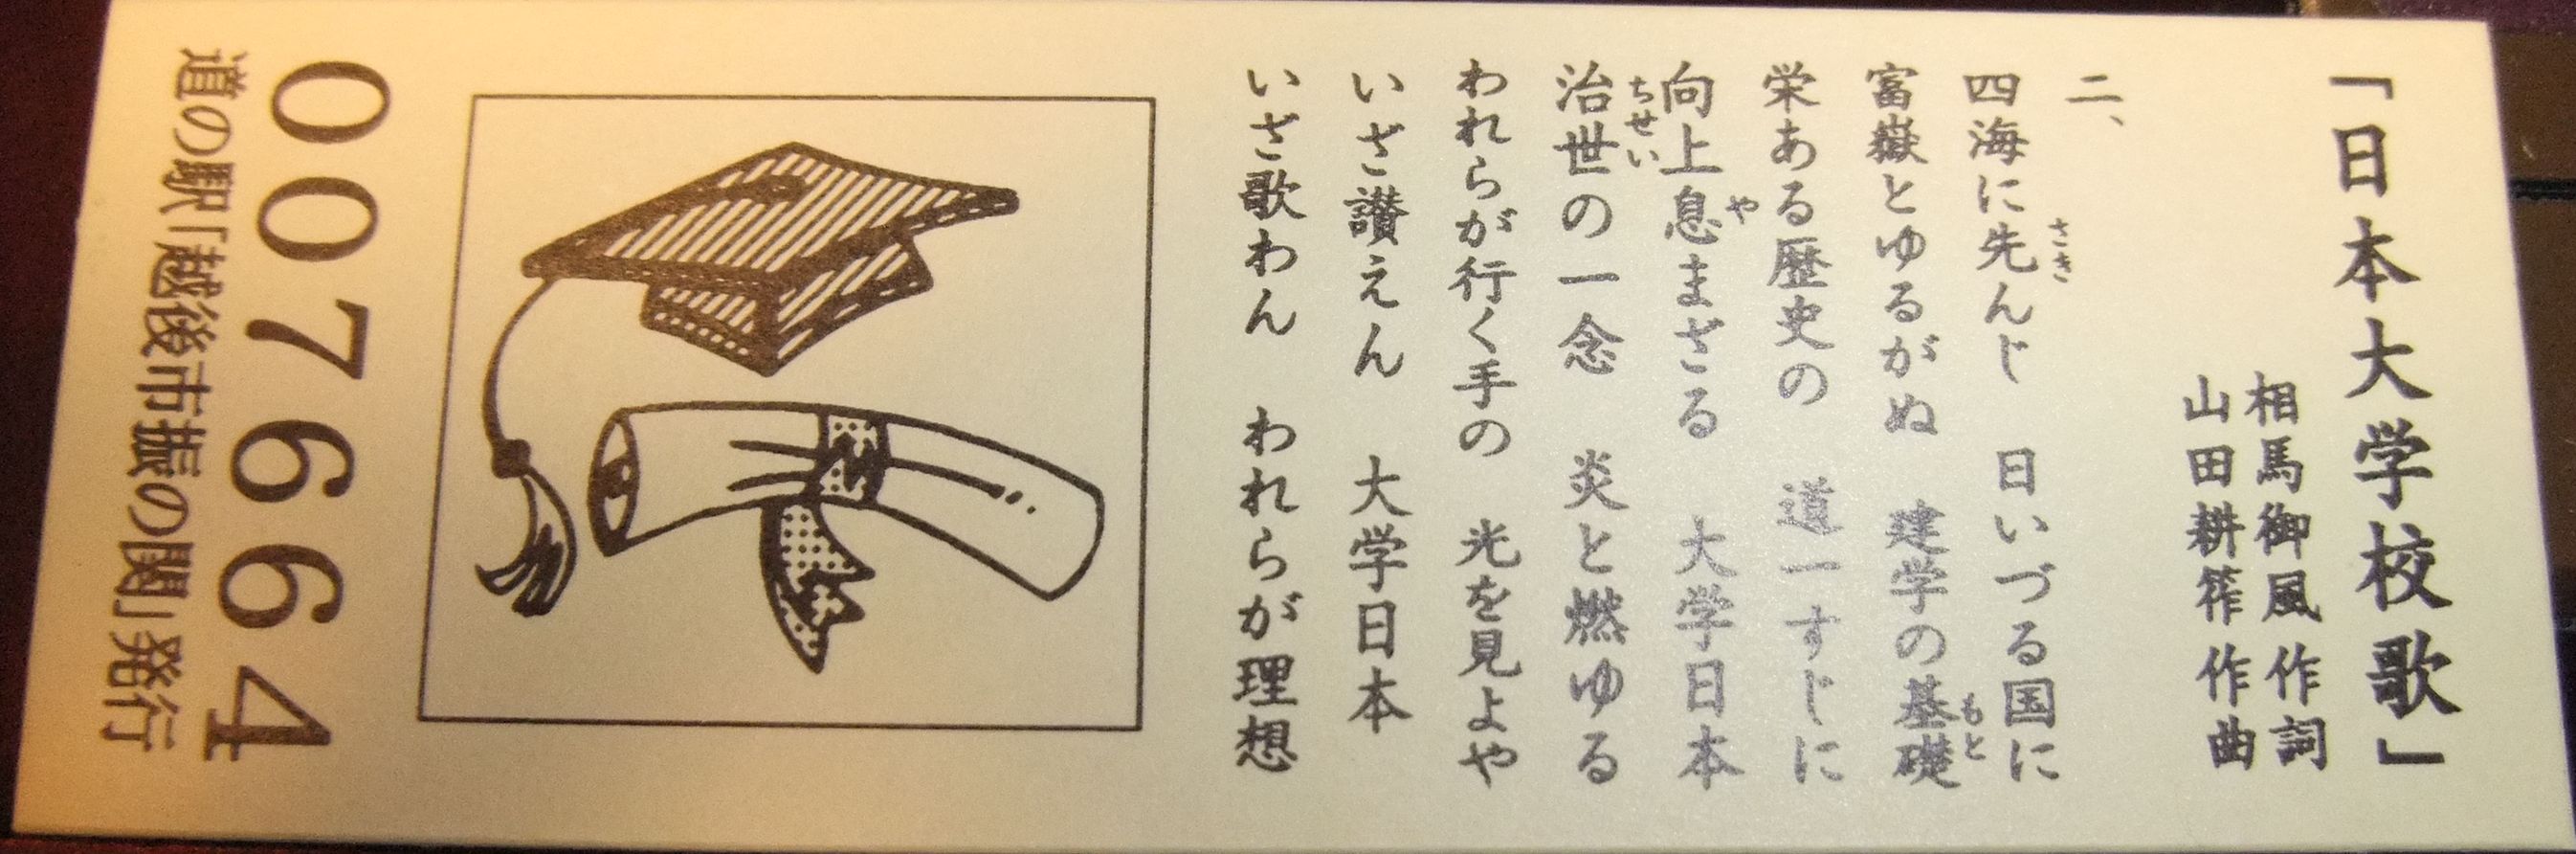 「日本大学校歌」
相馬御風 作詞
山田耕筰 作曲
二、
四海に先んじ 日いづる国に
さき
富嶽とゆるがぬ 建学の基礎
もと
栄ある歴史の 道一すじに
向上息まざる 大学日本
や
治世の一念 炎と燃ゆる
ちせい
われらが行く手の 光を見よや
いざ讃えん 大学日本
いざ歌わん われらが理想
007664
道の駅「越後市振の関」発行